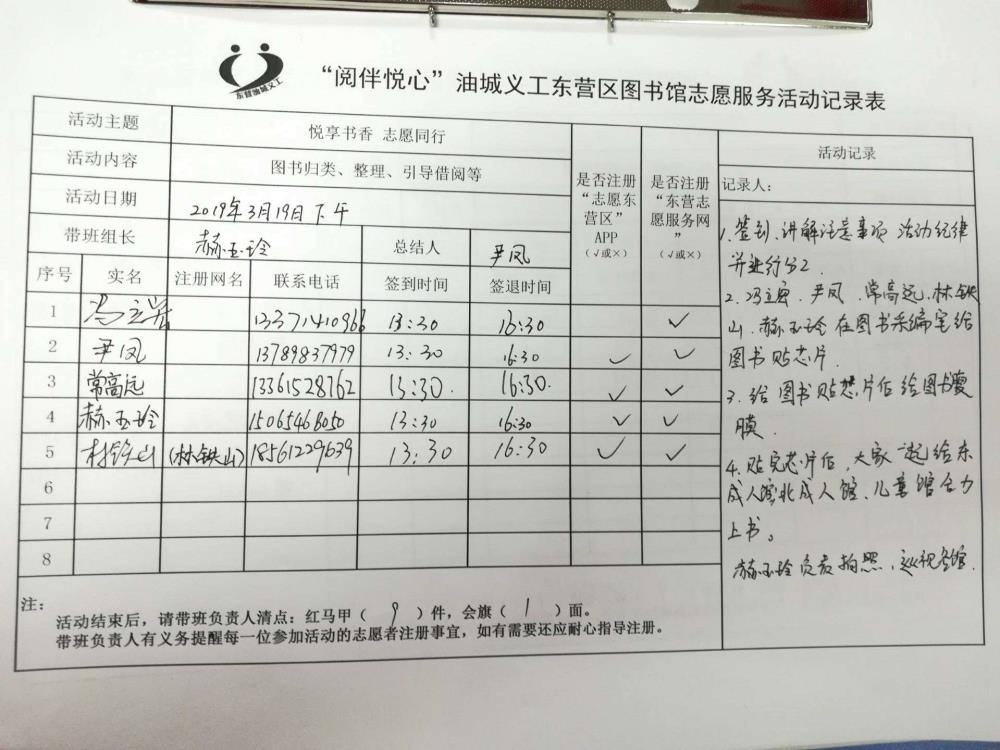 东营油城义工
“阅伴悦心”油城义工东营区图书馆志愿服务活动记录表
活动主题 悦享书香 志愿同行
活动内容 图书归类、整理、引导借阅等
活动日期 2019年3月19日下午
带班组长 郝玉玲 总结人 尹凤
是否注册
“志愿东
营区”
APP
(√或×)
是否注册
“东营志
愿服务网
”
(√或×)
序号 实名 注册网名 联系电话 签到时间 签退时间
1 冯立 13371410966 13:30 16:30 ✓
2 尹凤 13789837979 13:30 16:30 ✓ ✓
3 常高远 13361528762 13:30. 16:30. ✓ ✓
4 郝玉玲 15065468050 13:30 16:30 ✓ ✓
5 林铁山 (林铁山) 18561229639 13:30 16:30 ✓ ✓
6
7
8
活动记录
记录人:
1、签到、讲解注意事项 活动纪律
并进行分工.
2、冯立 、尹凤、常高远、林铁
山、郝玉玲在图书采编室给
图书贴芯片.
3、给图书贴 片后给图书覆
膜.
4、贴完芯片后,大家一起给东
成人馆北成人馆、儿童馆合力
上书。
郝玉玲负责拍照,巡视各馆.
注:
活动结束后,请带班负责人清点:红马甲( 9 )件,会旗( 1 )面。
带班负责人有义务提醒每一位参加活动的志愿者注册事宜,如有需要还应耐心指导注册。